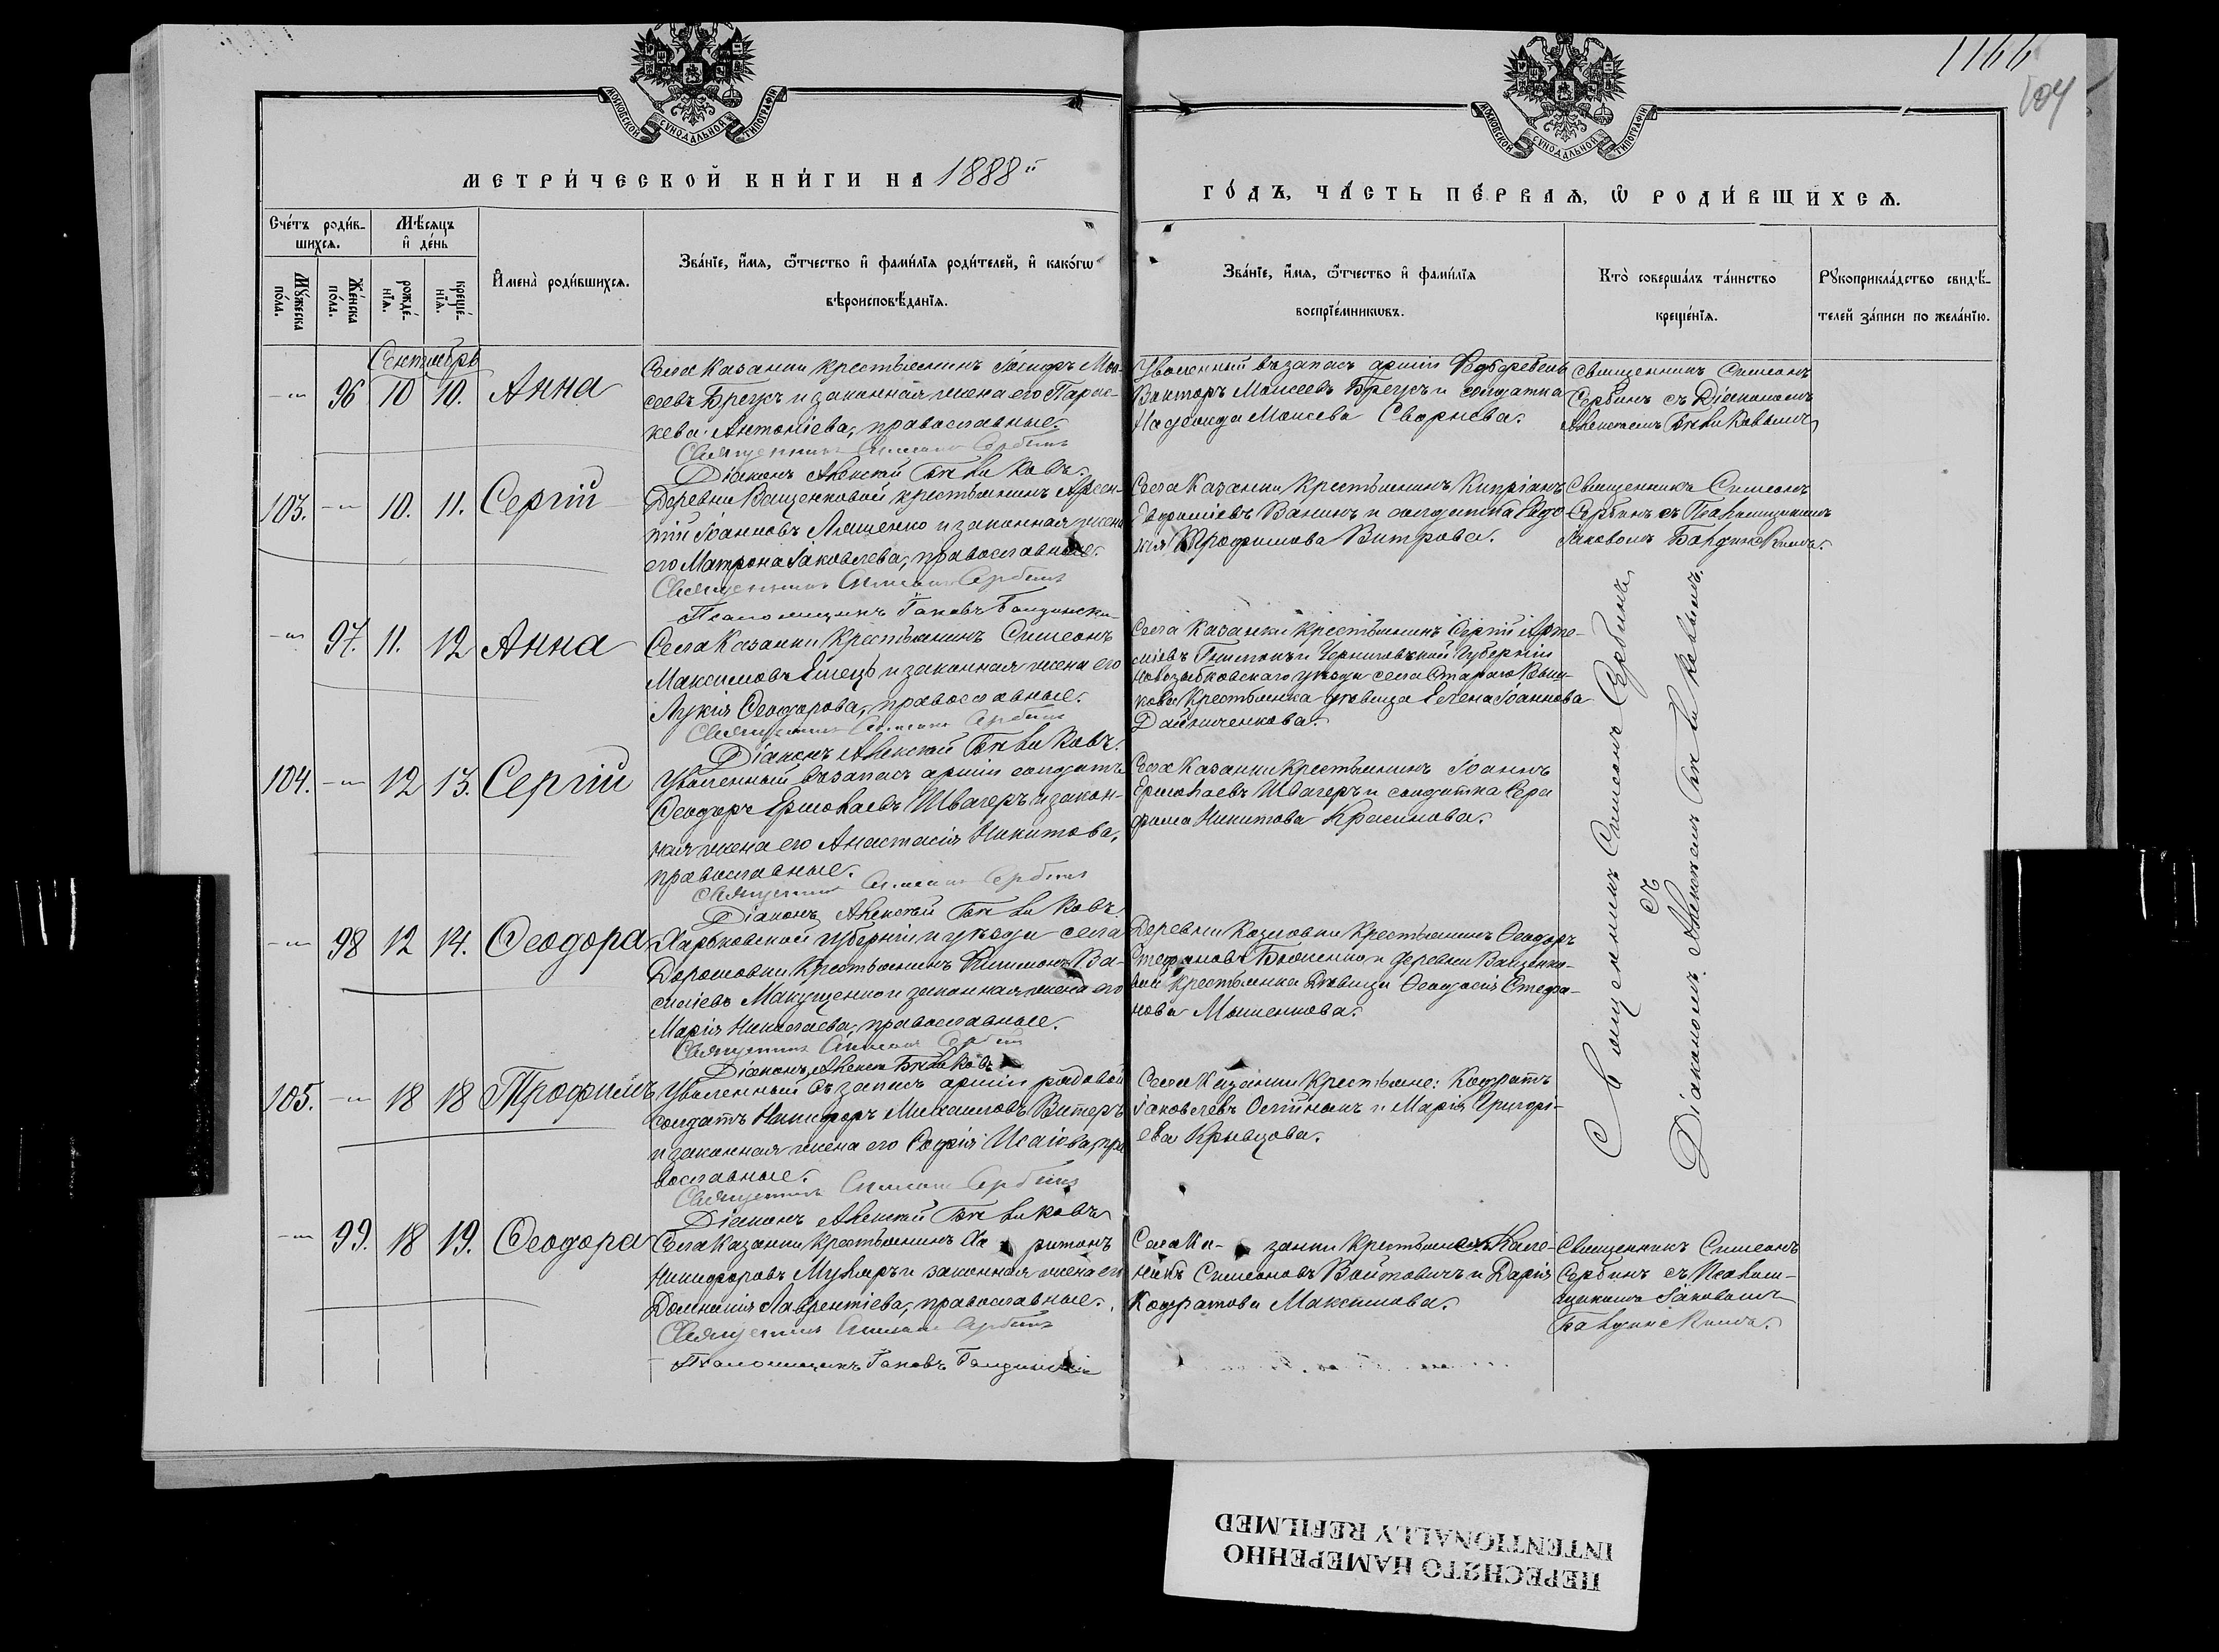 1166
104
МОСКОВСКОЙ СѴНОДАЛЬНОЙ ТИПОГРАФІИ
МОСКОВСКОЙ СѴНОДАЛЬНОЙ ТИПОГРАФІИ
МЕТРИ́ЧЕСКОЙ КНИ́ГИ НА 1888й
ГО́ДЪ, ЧА́СТЬ ПЕ́РВАѦ, Ѿ РОДИ́ВШИХСѦ.
Сче́тъ роди́в-
шихсѧ.
Мѣ́сѧцъ
и҆ де́нь
Мꙋ́жеска
по́ла.
Же́нска
по́ла.
рожде́-
нїѧ.
креще́-
нїѧ.
И҆мена̀ роди́вшихсѧ.
Зва́нїе, и҆́мѧ, ѻ҆́тчество и҆ фами́лїѧ роди́телей, и҆ како́гѡ
вѣроисповѣ́данїѧ.
Зва́нїе, и҆́мѧ, ѻ҆́тчество и҆ фами́лїѧ
воспрїе́мникѡвъ.
Кто̀ соверша́лъ та́инство
креще́нїѧ.
Рꙋкоприкла́дство свидѣ́-
телей за́писи по жела́нїю.
Сентябрь
96 10 10. Анна
Села Казанки крестьянинъ Іосифъ Мои-
сеевъ Брегуъ и законная жена его Парас-
кева Антоніева, православные.
Священникъ Симеонъ Сербинъ
Діаконъ Алексій
Уволенный въ запасъ арміи
Викторъ Моисеевъ Брегуъ и солдатка
Надежда Моисеева Сворнева.
Священникъ Симеонъ
Сербинъ съ Діакономъ
Алексіемъ
103. 10. 11. Сергій
Деревни Ващенковой крестьянинъ Арсен-
тій Іоанновъ Ляшенко и законная жена
его Матрона Іаковлева, православные.
Священникъ Симеонъ Сербинъ
Псаломщикъ Іаковъ
Села Казанки крестьянинъ Кипріанъ
Ванинъ и солдатка Евдо-
кія Трофимова Витрова.
Священникъ Симеонъ
Сербинъ съ Псаломщикомъ
Іаковомъ
97. 11. 12 Анна
Села Казанки крестьянинъ Симеонъ
Максимовъ и законная жена его
Лукія Ѳеодорова, православные.
Священникъ Симеонъ Сербинъ
Діаконъ Алексій
Села Казанки крестьянинъ Сергій Арте-
міевъ и Черниговской Губерніи
Новозыбковскаго уѣзда села Стараго Выш-
кова крестьянка дѣвица Елена Іоаннова
Данниченкова.
104. 12 13. Сергій
Уволенный въ запасъ арміи солдатъ
Ѳеодоръ Ермолаевъ Швагеръ и закон-
ная жена его Анастасія Никитова,
православные.
Священникъ Симеонъ Сербинъ
Діаконъ Алексій
Села Казанки крестьянинъ Іоаннъ
Ермолаевъ Швагеръ и солдатка Сера
фима Никитова Красикова.
98 12 14. Ѳеодора
Харьковской губерніи и уѣзда села
крестьянинъ Филимонъ Ва-
силіевъ Макущенко и законная жена его
Марія Николаева, православные.
Священникъ Симеонъ Сербинъ
Діаконъ Алексій
Деревни Козловки крестьянинъ Ѳеодоръ
Стефановъ и деревни Ващенко-
вой крестьянка дѣвица Ѳеодосія Стефа-
нова
105. 18 18 Трофимъ
Уволенный въ запасъ арміи рядовой
солдатъ Никифоръ Михаиловъ Витеръ
и законная жена его Софія Исаіева, пра
вославные.
Священникъ Симеонъ Сербинъ
Діаконъ Алексій
Села Казанки крестьяне: Кодратъ
Іаковлевъ и Марія Григорі-
ева Кривцова.
Священникъ Симеонъ Сербинъ
съ
Діакономъ Алексіемъ
99. 18 19. Ѳеодора
Села Казанки крестьянинъ Ха ритонъ
Никифоровъ Муляръ и законная жена его
Домникія Лаврентіева, православные.
Священникъ Симеонъ Сербинъ
Псаломщикъ Іаковъ
Села Ка- занки крестьяне: Кале-
никъ Симеоновъ Войтовичъ и Дарія
Кодратова Максимова.
Священникъ Симеонъ
Сербинъ съ Псалом-
щикомъ Іаковомъ
ПЕРЕСНЯТО НАМЕРЕННО
INTENTIONALLY REFILMED